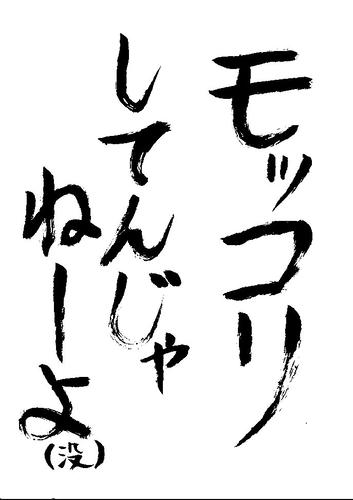 モッコリ
してんじゃ
ねーよ
(没)